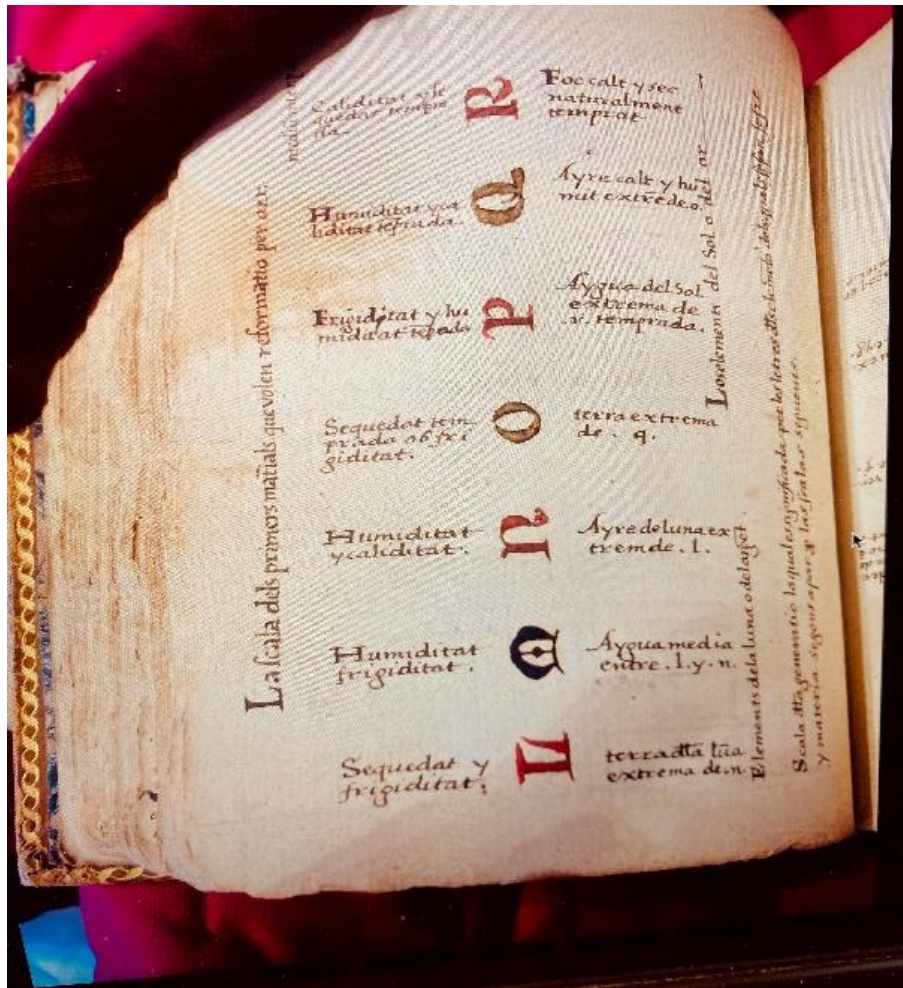 La scala dels primers mat̃ials que volen reformatio per arr.
Caliditat y se
quedat tempra
da.
R
Foc calt y sec
naturalment
temprat
Humiditat y ca
liditat tẽprada.
Q
Ayre calt y hu
mit extrẽ de o.
Frigiditat y hu
miditat tẽpada
P
Aygua del Sol
extrema de
.r. temprada.
Sequedat tem
prada ab fri
giditat.
O
terra extrema
de . q.
Humiditat
y caliditat.
N
Ayre de luna ex
trem de . l.
Humiditat
frigiditat .
M
Aygua media
entre . l. y . n.
Sequedat y
frigiditat.
L
terra dl̃a lũa
extrema de .n.
Los elements del Sol o del or
Elements de la luna o del argẽt
Scala dl̃a generatio la qual es significada per les letres
y materia segons apar ꝑ las scalas seguents.